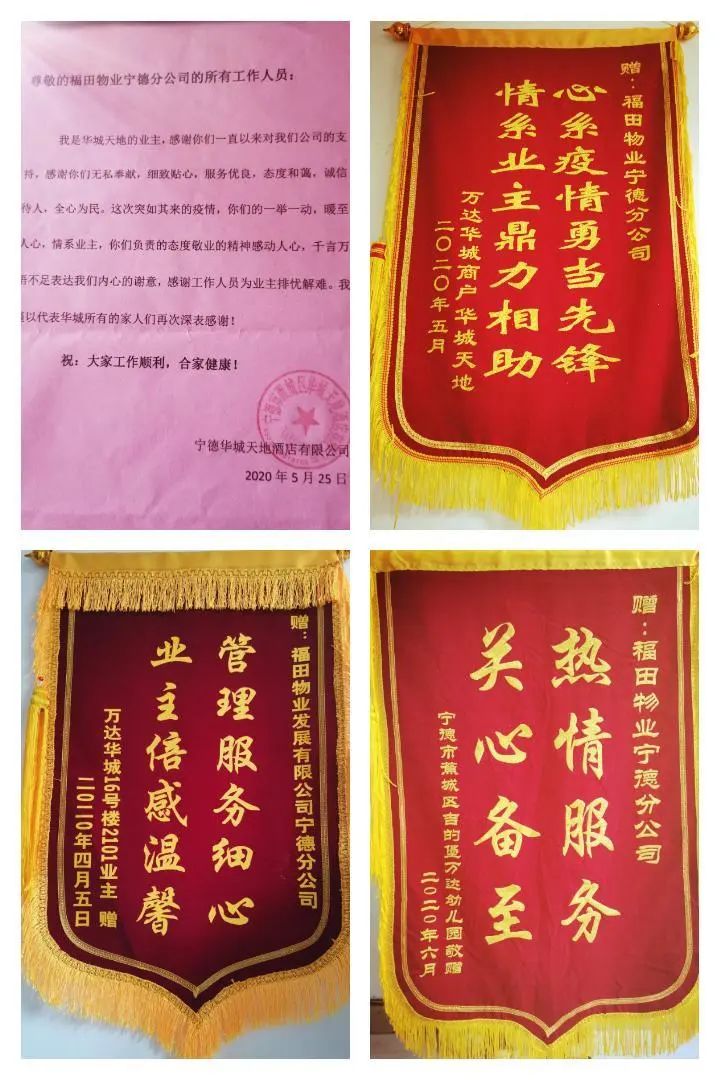 尊敬的福田物业宁德分公司的所有工作人员：
我是华城天地的业主，感谢你们一直以来对我们公司的支
持，感谢你们无私奉献，细致贴心，服务优良，态度和蔼，诚信
待人，全心为民。这次突如其来的疫情，你们的一举一动，暖至
人心，情系业主，你们负责的态度敬业的精神感动人心，千言万
语不足表达我们内心的谢意，感谢工作人员为业主排忧解难。我
以代表华城所有的家人们再次深表感谢！
祝：大家工作顺利，合家健康！
宁德华城天地酒店有限公司
2020年5月25日
赠：福田物业宁德分公司
心系疫情勇当先锋
情系业主鼎力相助
万达华城商户华城天地
二〇二〇年五月
赠：福田物业发展有限公司宁德分公司
管理服务细心
业主倍感温馨
万达华城16号楼2101业主 赠
二〇二〇年四月五日
赠：福田物业宁德分公司
热情服务
关心备至
宁德市蕉城区吉的堡万达幼儿园敬赠
二〇二〇年六月